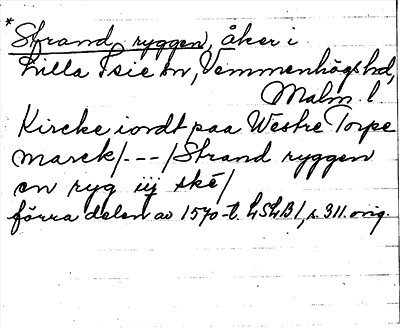 * Strand ryggen, åker i
Lilla Isie sn, Vemmenhögs hd,
Malm. l.
Kircke iordt paa Westre Torpe
marck/---/Strand ryggen
en ryg iij ske/
förra delen av 1570-t. LSLB1, s. 311. orig.